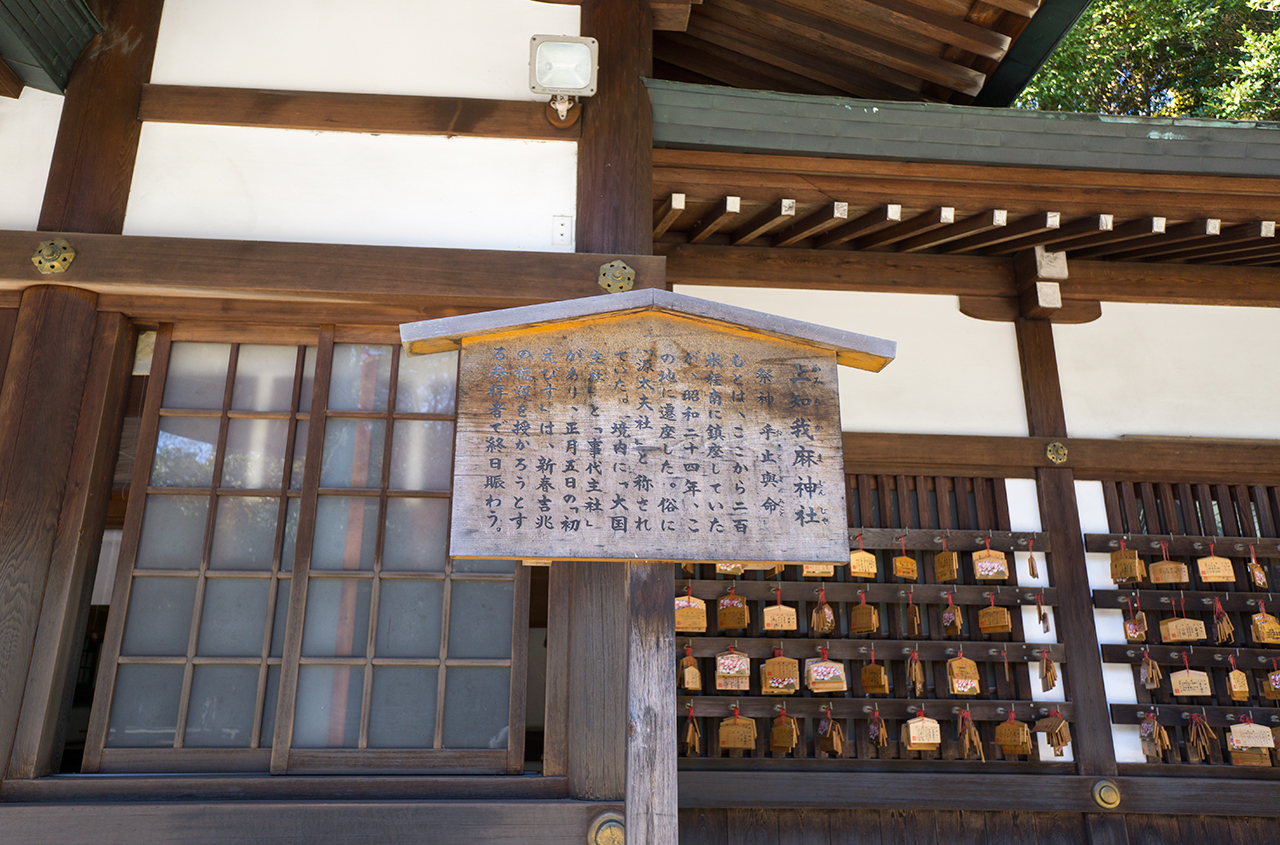 上知我麻神社
祭神 乎止與命
もとは、ここから二百
米程南に鎮座していた
が、昭和二十四年、こ
の地に遷座した。俗に
「源太夫社」と称され
ていた。境内に「大国
主社」と「事代主社」
があり、正月五日の「初
えびす」は、新春吉兆
の を授かろうとす
る参拝者で終日賑わう。